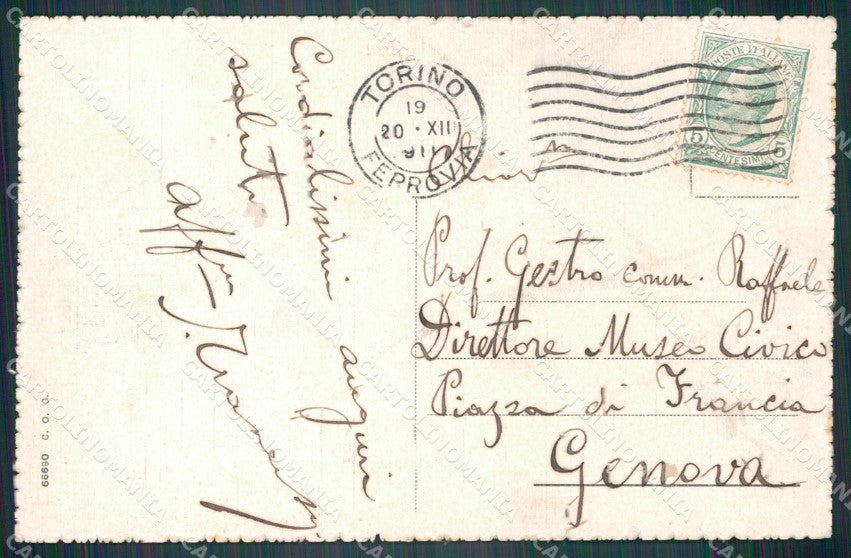 Cordialissimi auguri
saluti
aff.mo
TORINO
19
20 · XII
911
FERROVIA
POSTE ITALIANE
5 CENTESIMI 5
Prof. Gestro comm. Raffaele
Direttore Museo Civico
Piazza di Francia
Genova
66690 C. C. O.
CARTOLINOMANIA